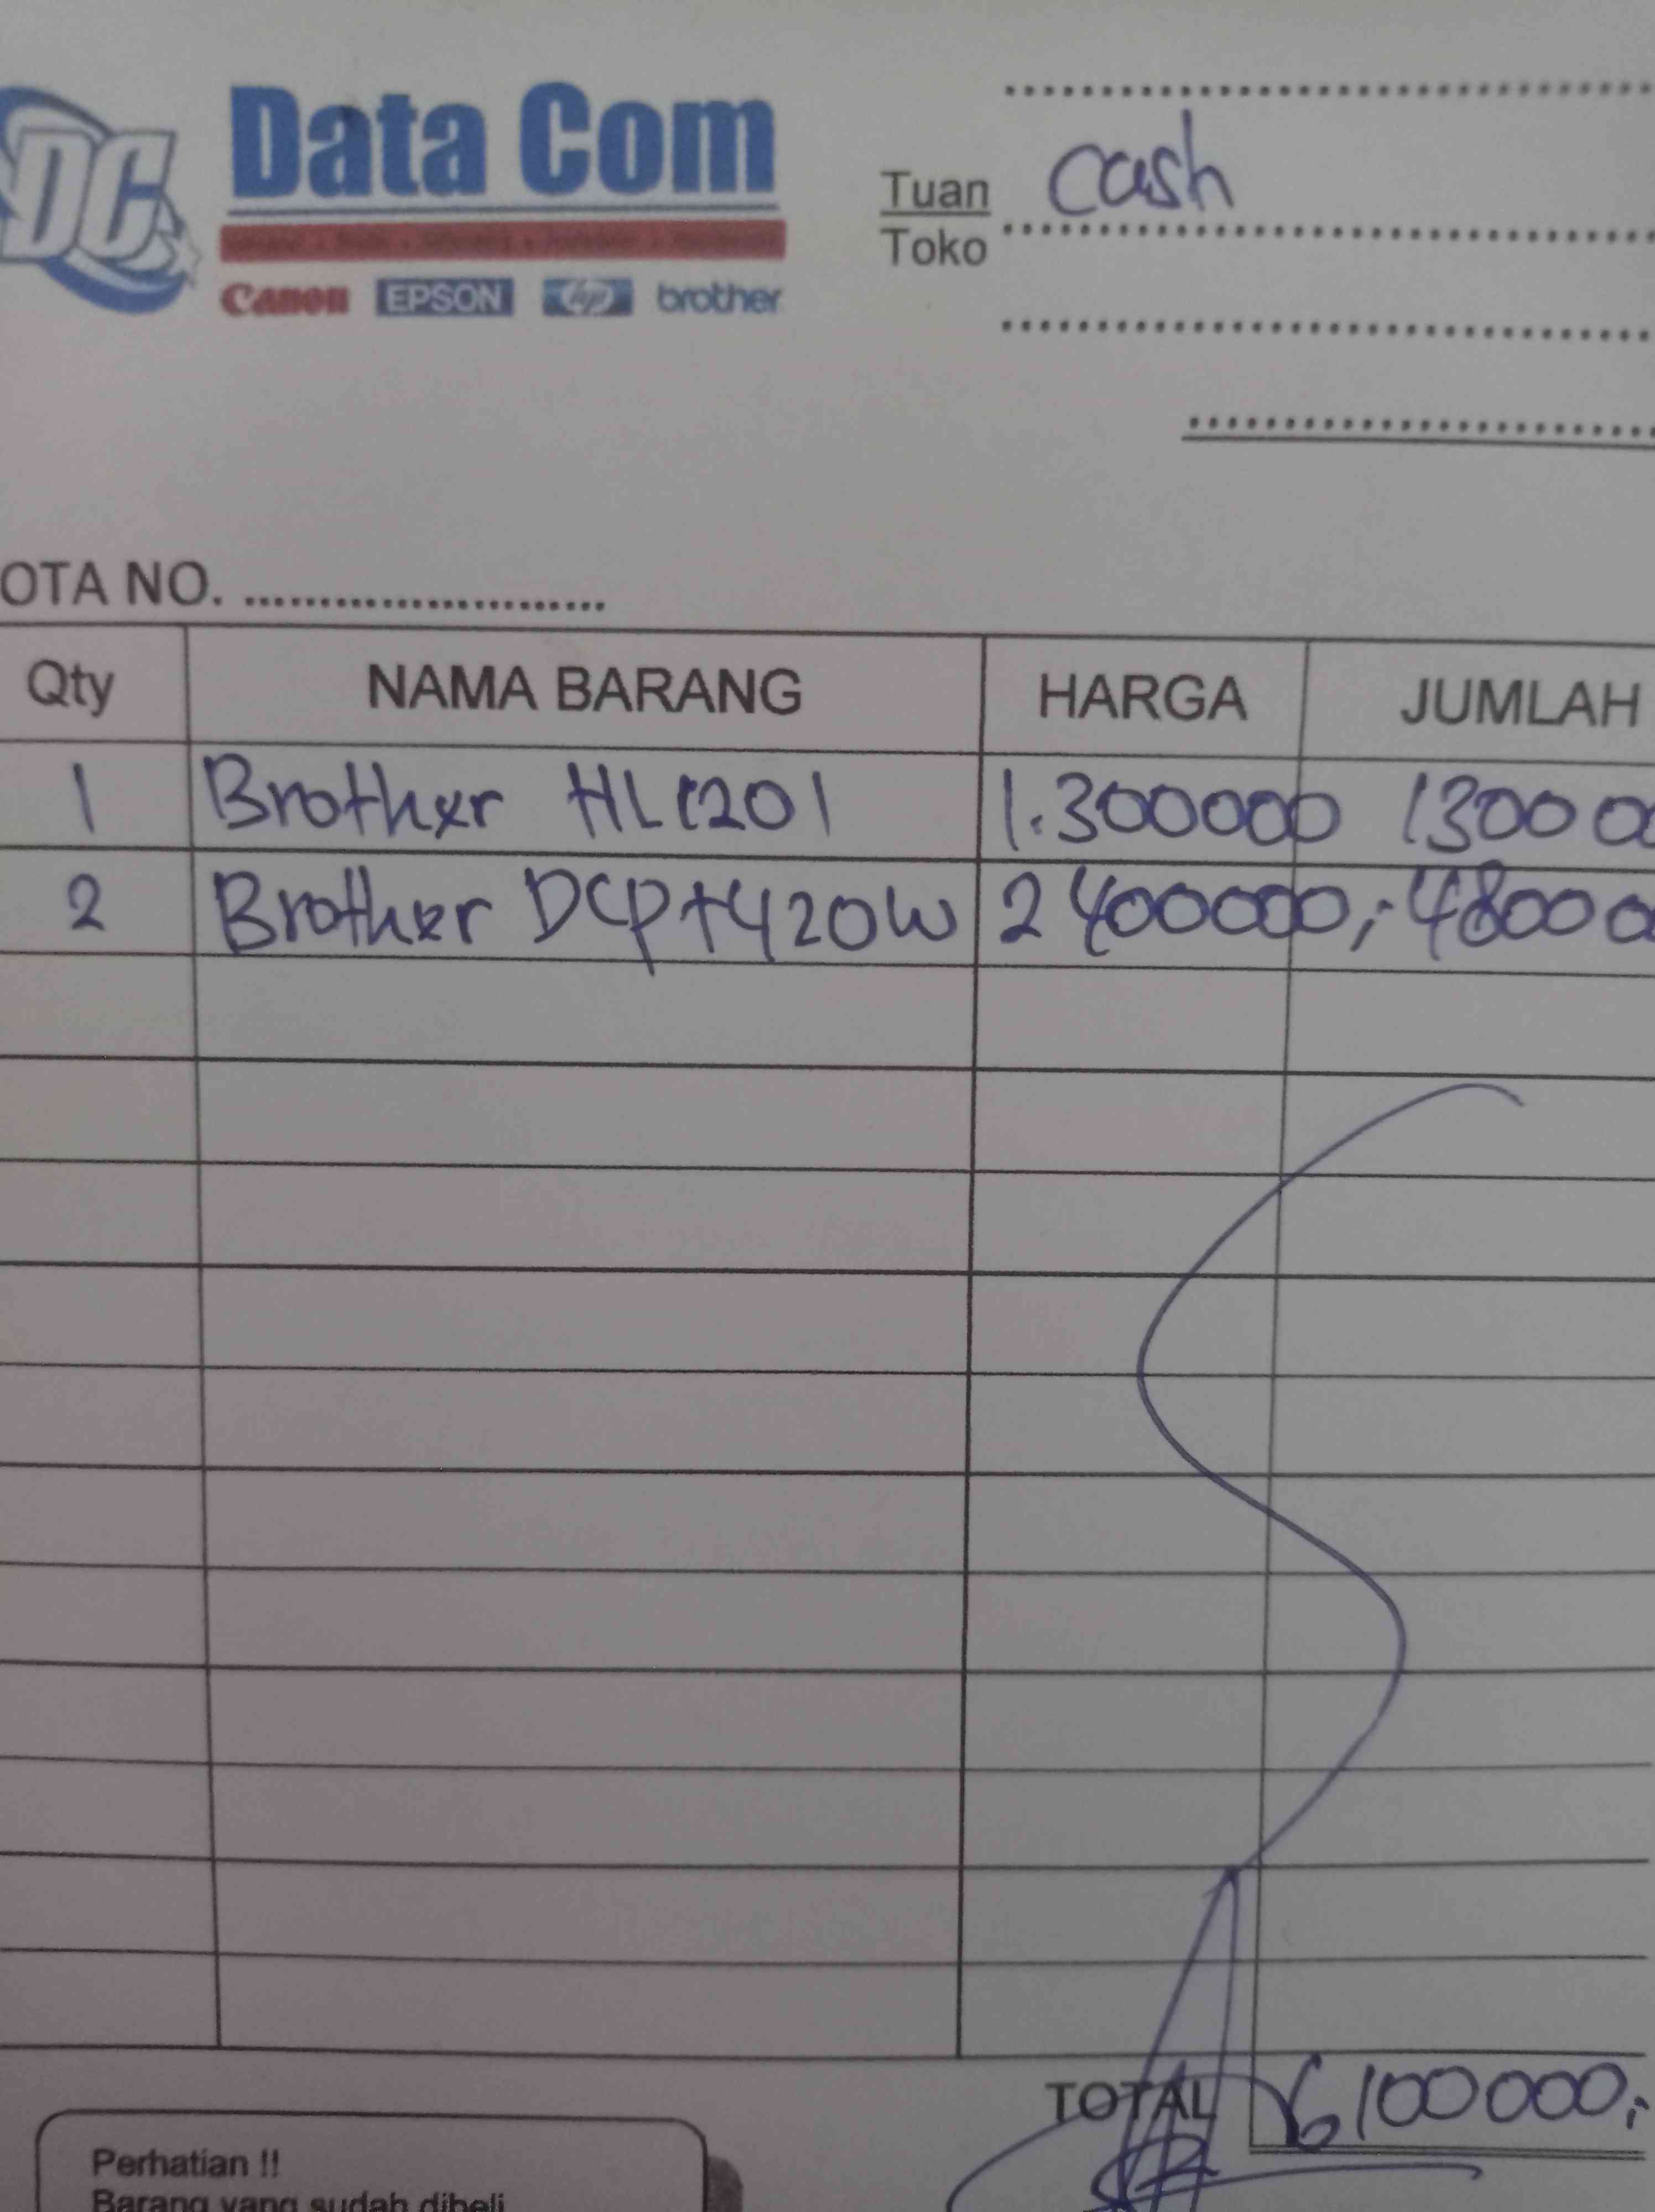 DC
Data Com
Canon EPSON hp brother
Tuan Cash
Toko
OTA NO. ........................
Qty NAMA BARANG HARGA JUMLAH
1 Brother HL1201 1.300000 1300 00
2 Brother DCP T420W 2400000,- 4800 0
TOTAL 6100000,-
Perhatian !!
Barang yang sudah dibeli